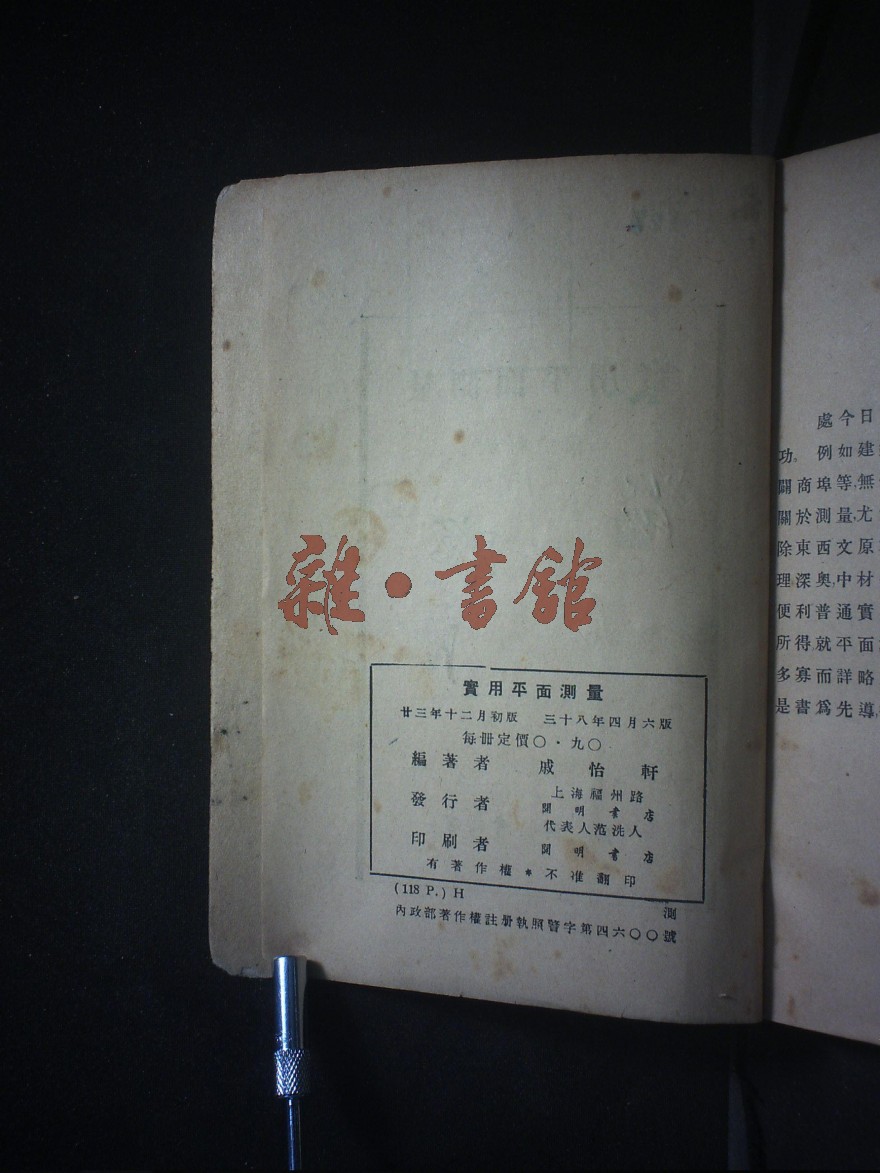 雜·書館
實用平面測量
廿三年十二月初版 三十八年四月六版
每冊定價〇·九〇
編著者 戚怡軒
發行者 上海福州路
開明書店
代表人范洗人
印刷者 開明書店
有著作權*不准翻印
(118 P.) H 測
內政部著作權註冊執照警字第四六〇〇號
處今日
功. 例如建
闢商埠等,無
關於測量,尤
除東西文原
理深奧,中材
便利普通實
所得,就平面
多寡而詳略
是書爲先導,